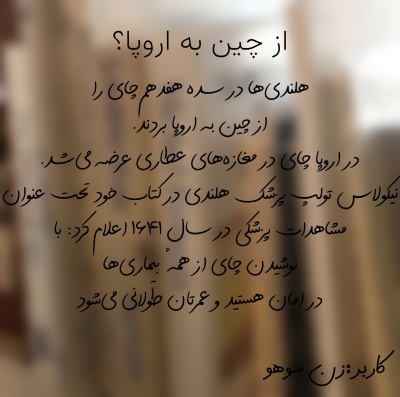 از چین به اروپا؟
هلندی‌ها در سده هفدهم چای را
از چین به اروپا بردند.
در اروپا چای در مغازه‌های عطاری عرضه می‌شد.
نیکولاس تولپ پزشک هلندی در کتاب خود تحت عنوان
مشاهدات پزشکی در سال ۱۶۴۱ اعلام کرد: با
نوشیدن چای از همهٔ بیماری‌ها
در امان هستید و عمرتان طولانی می‌شود
کاربر:زن سوهو